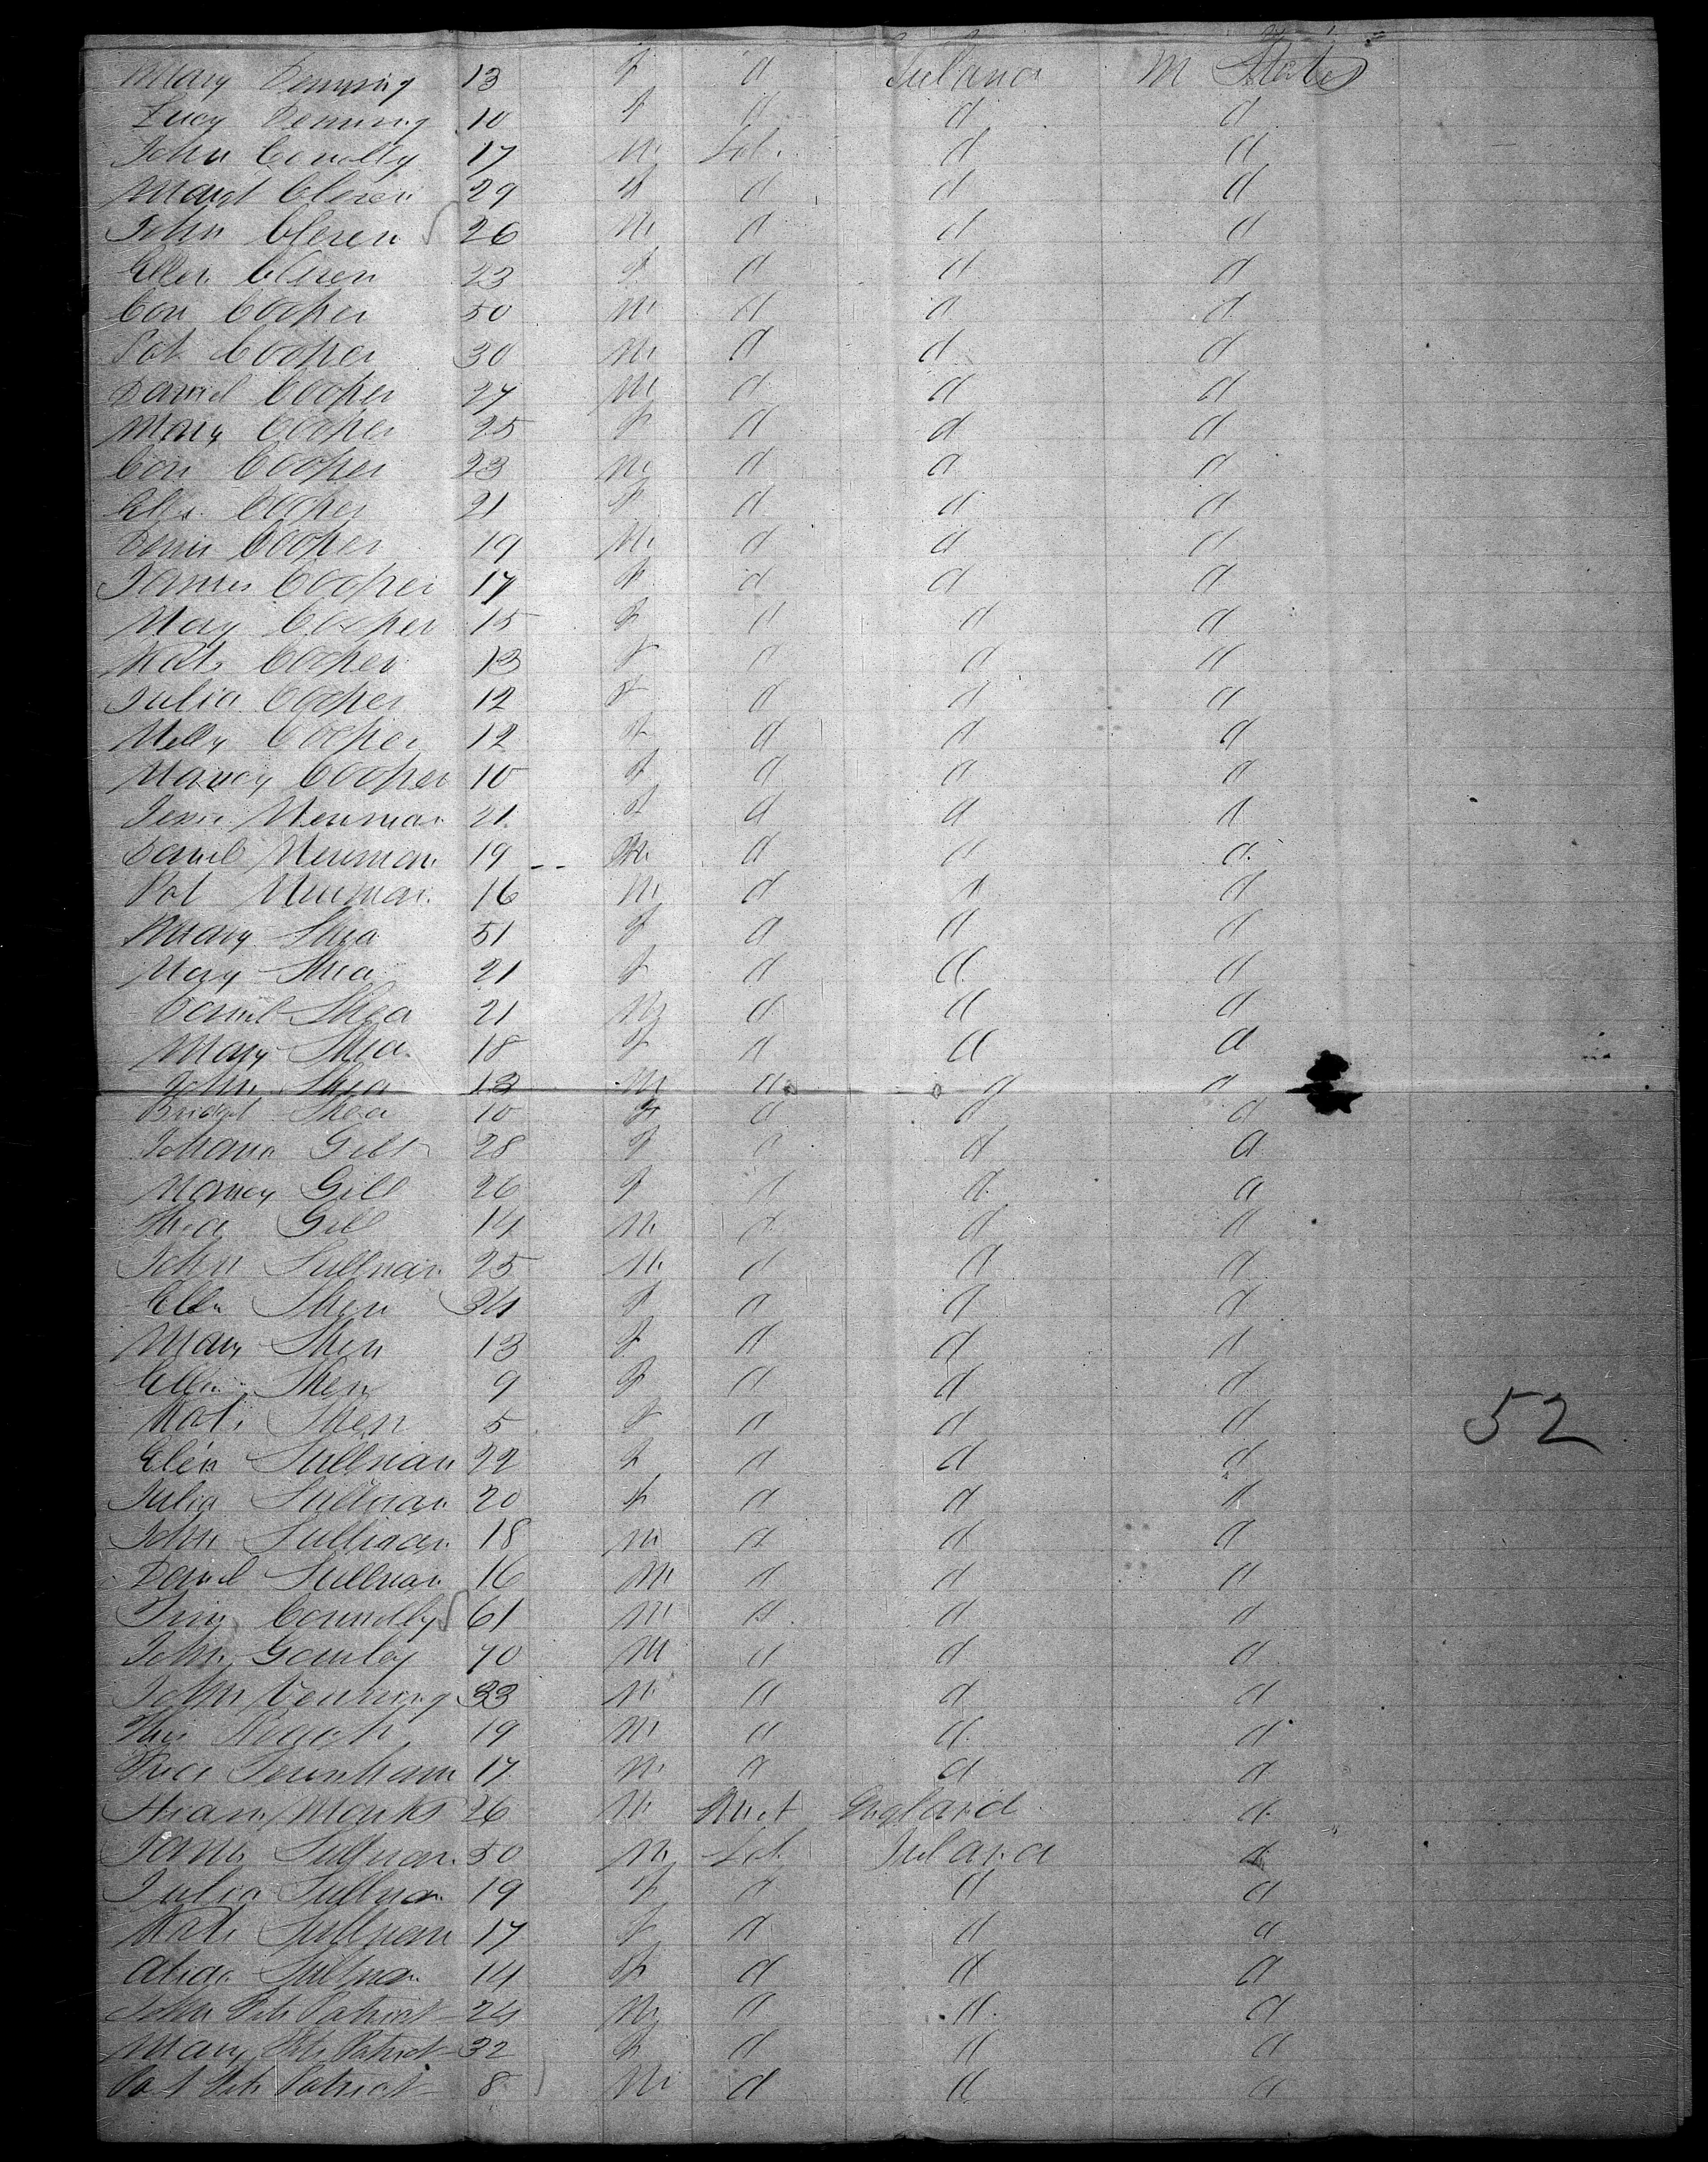 Mary Denning 13 F d Ireland M States
Lucy Denning 10 F d d d
John Conolly 17 M Lab. d d
Margt Cleren 29 F d d d
John Cleren 26 M d d d
Ellen Cleren 23 F d d d
Con Cooper 50 M d d d
Pat Cooper 30 M d d d
Daniel Cooper 27 M d d d
Mary Cooper 25 F d d d
Con Cooper 23 M d d d
Ellen Cooper 21 F d d d
Denis Cooper 19 M d d d
James Cooper 17 F d d d
Mary Cooper 15 F d d d
Kate Cooper 13 F d d d
Julia Cooper 12 F d d d
Nelly Cooper 12 F d d d
Nancy Cooper 10 F d d d
Newman 21 F d d d
Daniel Newman 19 M d d d
Pat Newman 16 M d d d
Mary Shea 51 F d d d
Mary Shea 21 F d d d
Daniel Shea 21 M d d d
Mary Shea 18 F d d d
John Shea 13 M d d d
Bridget Shea 10 F d d d
Johana Gill 28 F d d d
Nancy Gill 26 F d d d
Gill 14 M d d d
John Sullivan 25 M d d d
Ellen Shea 34 F d d d
Mary Shea 13 F d d d
Ellen Shea 9 F d d d
Kate Shea 5 F d d d
52
Ellen Sullivan 22 F d d d
Julia Sullivan 20 F d d d
John Sullivan 18 M d d d
Daniel Sullivan 16 M d d d
Connolly 61 M d d d
John 70 M d d d
John 33 M d d d
Thos 19 M d d d
17 M d d d
Monks 26 M England d
James Sullivan 50 M Lab Ireland d
Julia Sullivan 19 F d d d
Kate Sullivan 17 F d d d
Sullivan 14 F d d d
John Fitz Patrick 24 M d d d
Mary Fitz Patrick 32 F d d d
Pat Fitz Patrick 8 M d d d